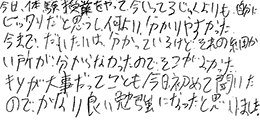 今日、体験授業をやって今している じゅくよりも、自分に
ピッタリだと思ったし、何より、分かりやすかった。
今まで、だいたいは、分かっているけど、そこの細か
い所が分からなかったので、そこがよかった。
キリが大事だってことも今日初めて聞いた
のでかなり良い勉強になったと思いました。